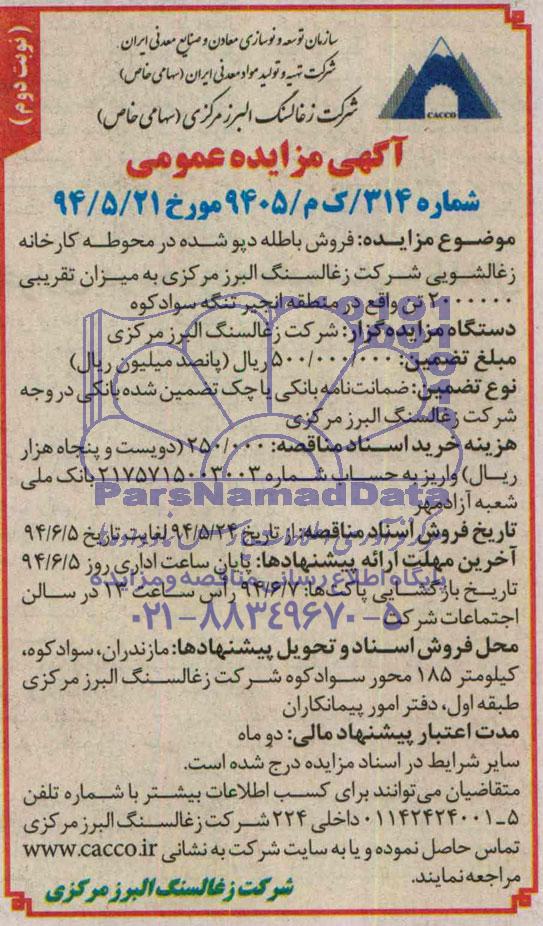 (نوبت دوم)
سازمان توسعه و نوسازی معادن و صنایع معدنی ایران
شرکت تهیه و تولید مواد معدنی ایران (سهامی خاص)
شرکت زغالسنگ البرز مرکزی (سهامی خاص)
CACCO
آگهی مزایده عمومی
شماره ۳۱۴/ک م/۹۴۰۵ مورخ ۹۴/۵/۲۱
موضوع مزایده: فروش باطله دپو شده در محوطه کارخانه
زغالشویی شرکت زغالسنگ البرز مرکزی به میزان تقریبی
۲۰۰۰۰۰۰ تن واقع در منطقه انجیر تنگه سوادکوه
دستگاه مزایده‌گزار: شرکت زغالسنگ البرز مرکزی
مبلغ تضمین: ۵۰۰/۰۰۰/۰۰۰ ریال (پانصد میلیون ریال)
نوع تضمین: ضمانت‌نامه بانکی یا چک تضمین شده بانکی در وجه
شرکت زغالسنگ البرز مرکزی
هزینه خرید اسناد مناقصه: ۲۵۰/۰۰۰ (دویست و پنجاه هزار
ریال) واریز به حساب شماره ۲۱۷۵۷۱۵۰۰۳۰۰۳ بانک ملی
شعبه آزادمهر
ParsNamadData
تاریخ فروش اسناد مناقصه: از تاریخ ۹۴/۵/۲۴ لغایت تاریخ ۹۴/۶/۵
آخرین مهلت ارائه پیشنهادها: پایان ساعت اداری روز ۹۴/۶/۵
پایگاه اطلاع رسانی مناقصه و مزایده
تاریخ بازگشایی پاکت‌ها: ۹۴/۶/۷ راس ساعت ۱۳ در سالن
اجتماعات شرکت
۰۲۱-۸۸۳۴۹۶۷۰-۵
محل فروش اسناد و تحویل پیشنهادها: مازندران، سوادکوه،
کیلومتر ۱۸۵ محور سوادکوه شرکت زغالسنگ البرز مرکزی
طبقه اول، دفتر امور پیمانکاران
مدت اعتبار پیشنهاد مالی: دو ماه
سایر شرایط در اسناد مزایده درج شده است.
متقاضیان می‌توانند برای کسب اطلاعات بیشتر با شماره تلفن
۵-۰۱۱۴۲۴۲۴۰۰۱ داخلی ۲۲۴ شرکت زغالسنگ البرز مرکزی
تماس حاصل نموده و یا به سایت شرکت به نشانی www.cacco.ir
مراجعه نمایند.
شرکت زغالسنگ البرز مرکزی